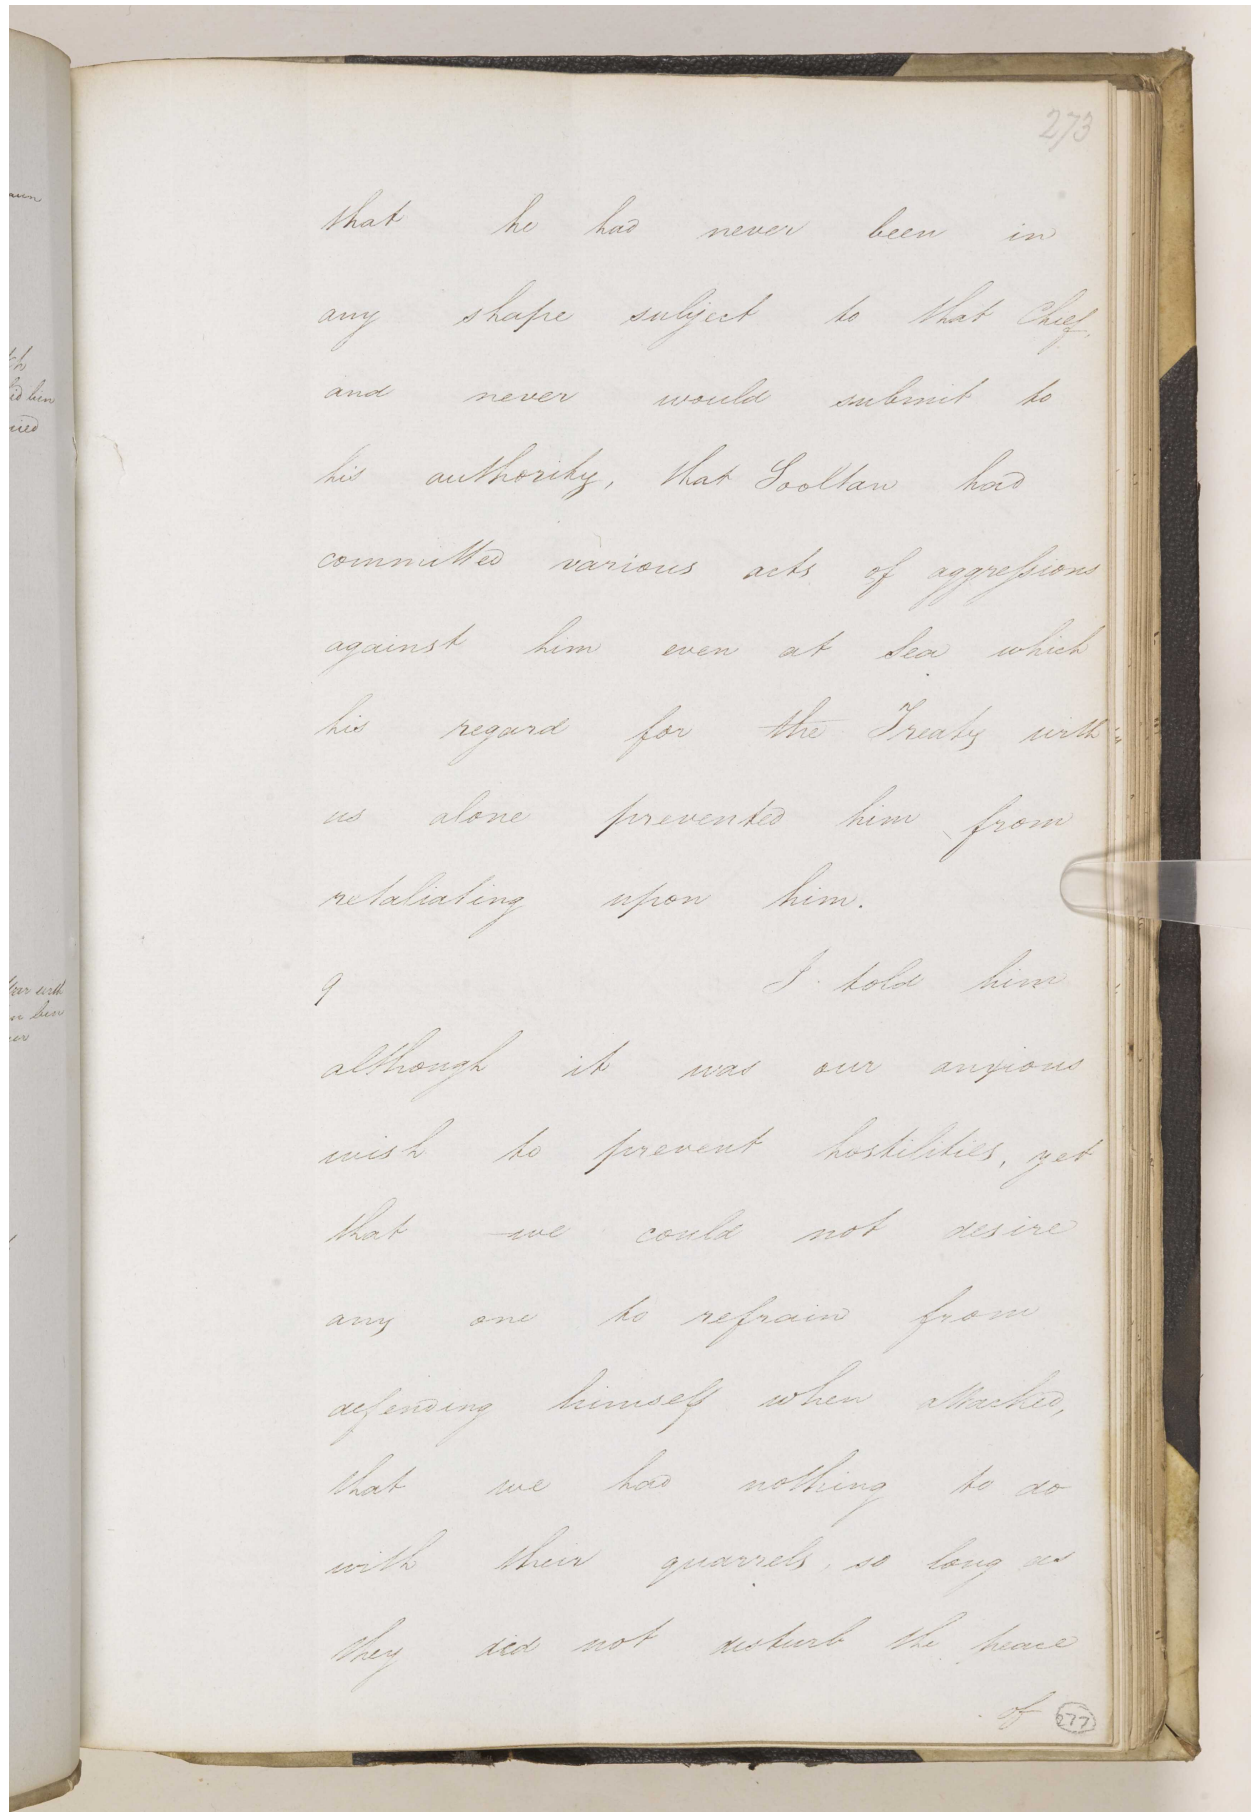 273
that he had never been in
any shape subject to that Chief,
and never would submit to
his authority, that Sooltan had
committed various acts of aggressions
against him even at Sea which
his regard for the Treaty with
us alone prevented him from
retaliating upon him.
9 I told him
although it was our anxious
wish to prevent hostilities, yet
that we could not desire
any one to refrain from
defending himself when attacked,
that we had nothing to do
with their quarrels, so long as
they did not disturb the peace
of
277